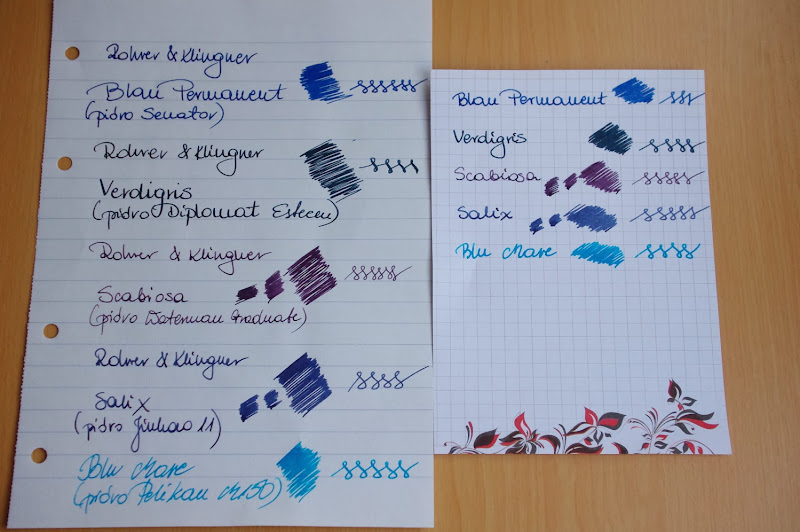 Rohrer & Klingner
Blau Permanent
(pióro Senator)
Rohrer & Klingner
Verdigris
(pióro Diplomat Esteem)
Rohrer & Klingner
Scabiosa
(pióro Waterman Graduate)
Rohrer & Klingner
Salix
(pióro Jinhao 11)
Blu Mare
(pióro Pelikan M150)
Blau Permanent
Verdigris
Scabiosa
Salix
Blu Mare